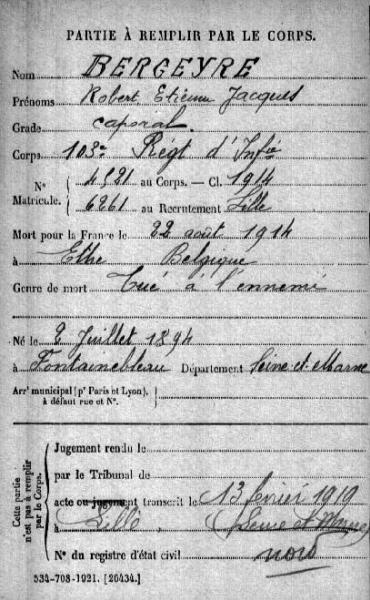 PARTIE À REMPLIR PAR LE CORPS.
Nom BERGEYRE
Prénoms Robert Etienne Jacques
Grade caporal.
Corps 103e Régt d'Infie
N° Matricule. { 4521 au Corps. — Cl. 1914
6261 au Recrutement Lille
Mort pour la France le 22 août 1914
à Ethe Belgique
Genre de mort Tué à l'ennemi
Né le 2 Juillet 1894
à Fontainebleau Département Seine-et-Marne
Arrt municipal (pr Paris et Lyon), à défaut rue et N°.
Cette partie n'est pas à remplir par le Corps.
Jugement rendu le
par le Tribunal de
acte ou jugement transcrit le 13 février 1919
à Lille (Seine et Marne)
N° du registre d'état civil nord
534-708-1921. [26434.]